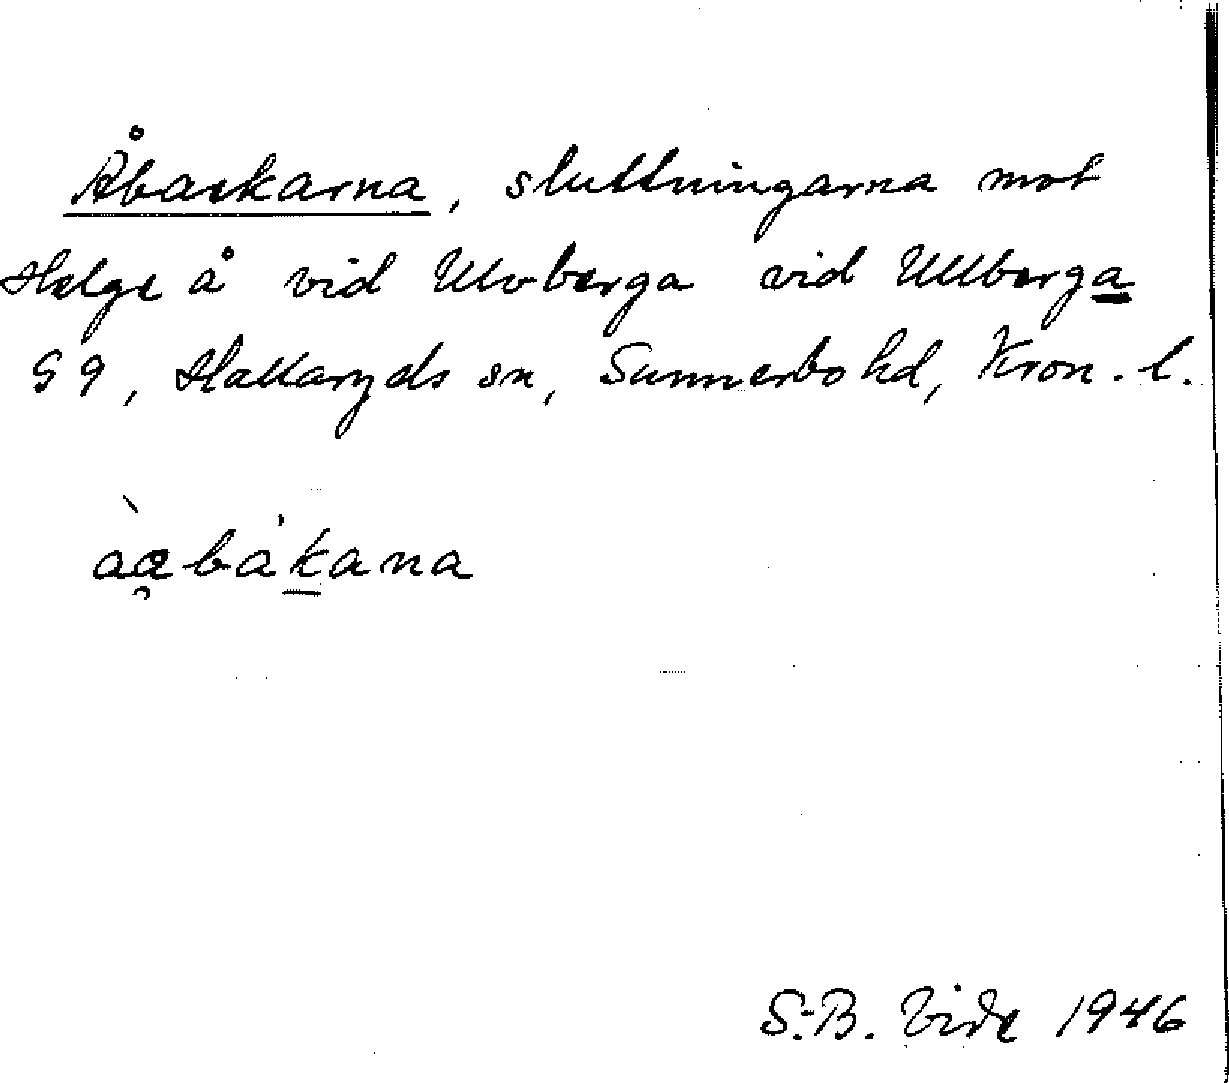 Åbackarna, sluttningarna mot
Helge å vid Ulvberga vid Ullberga
S9, Hallaryds sn, Sunnerbo hd, Kron. l.
àabákana
S.-B. Vide 1946